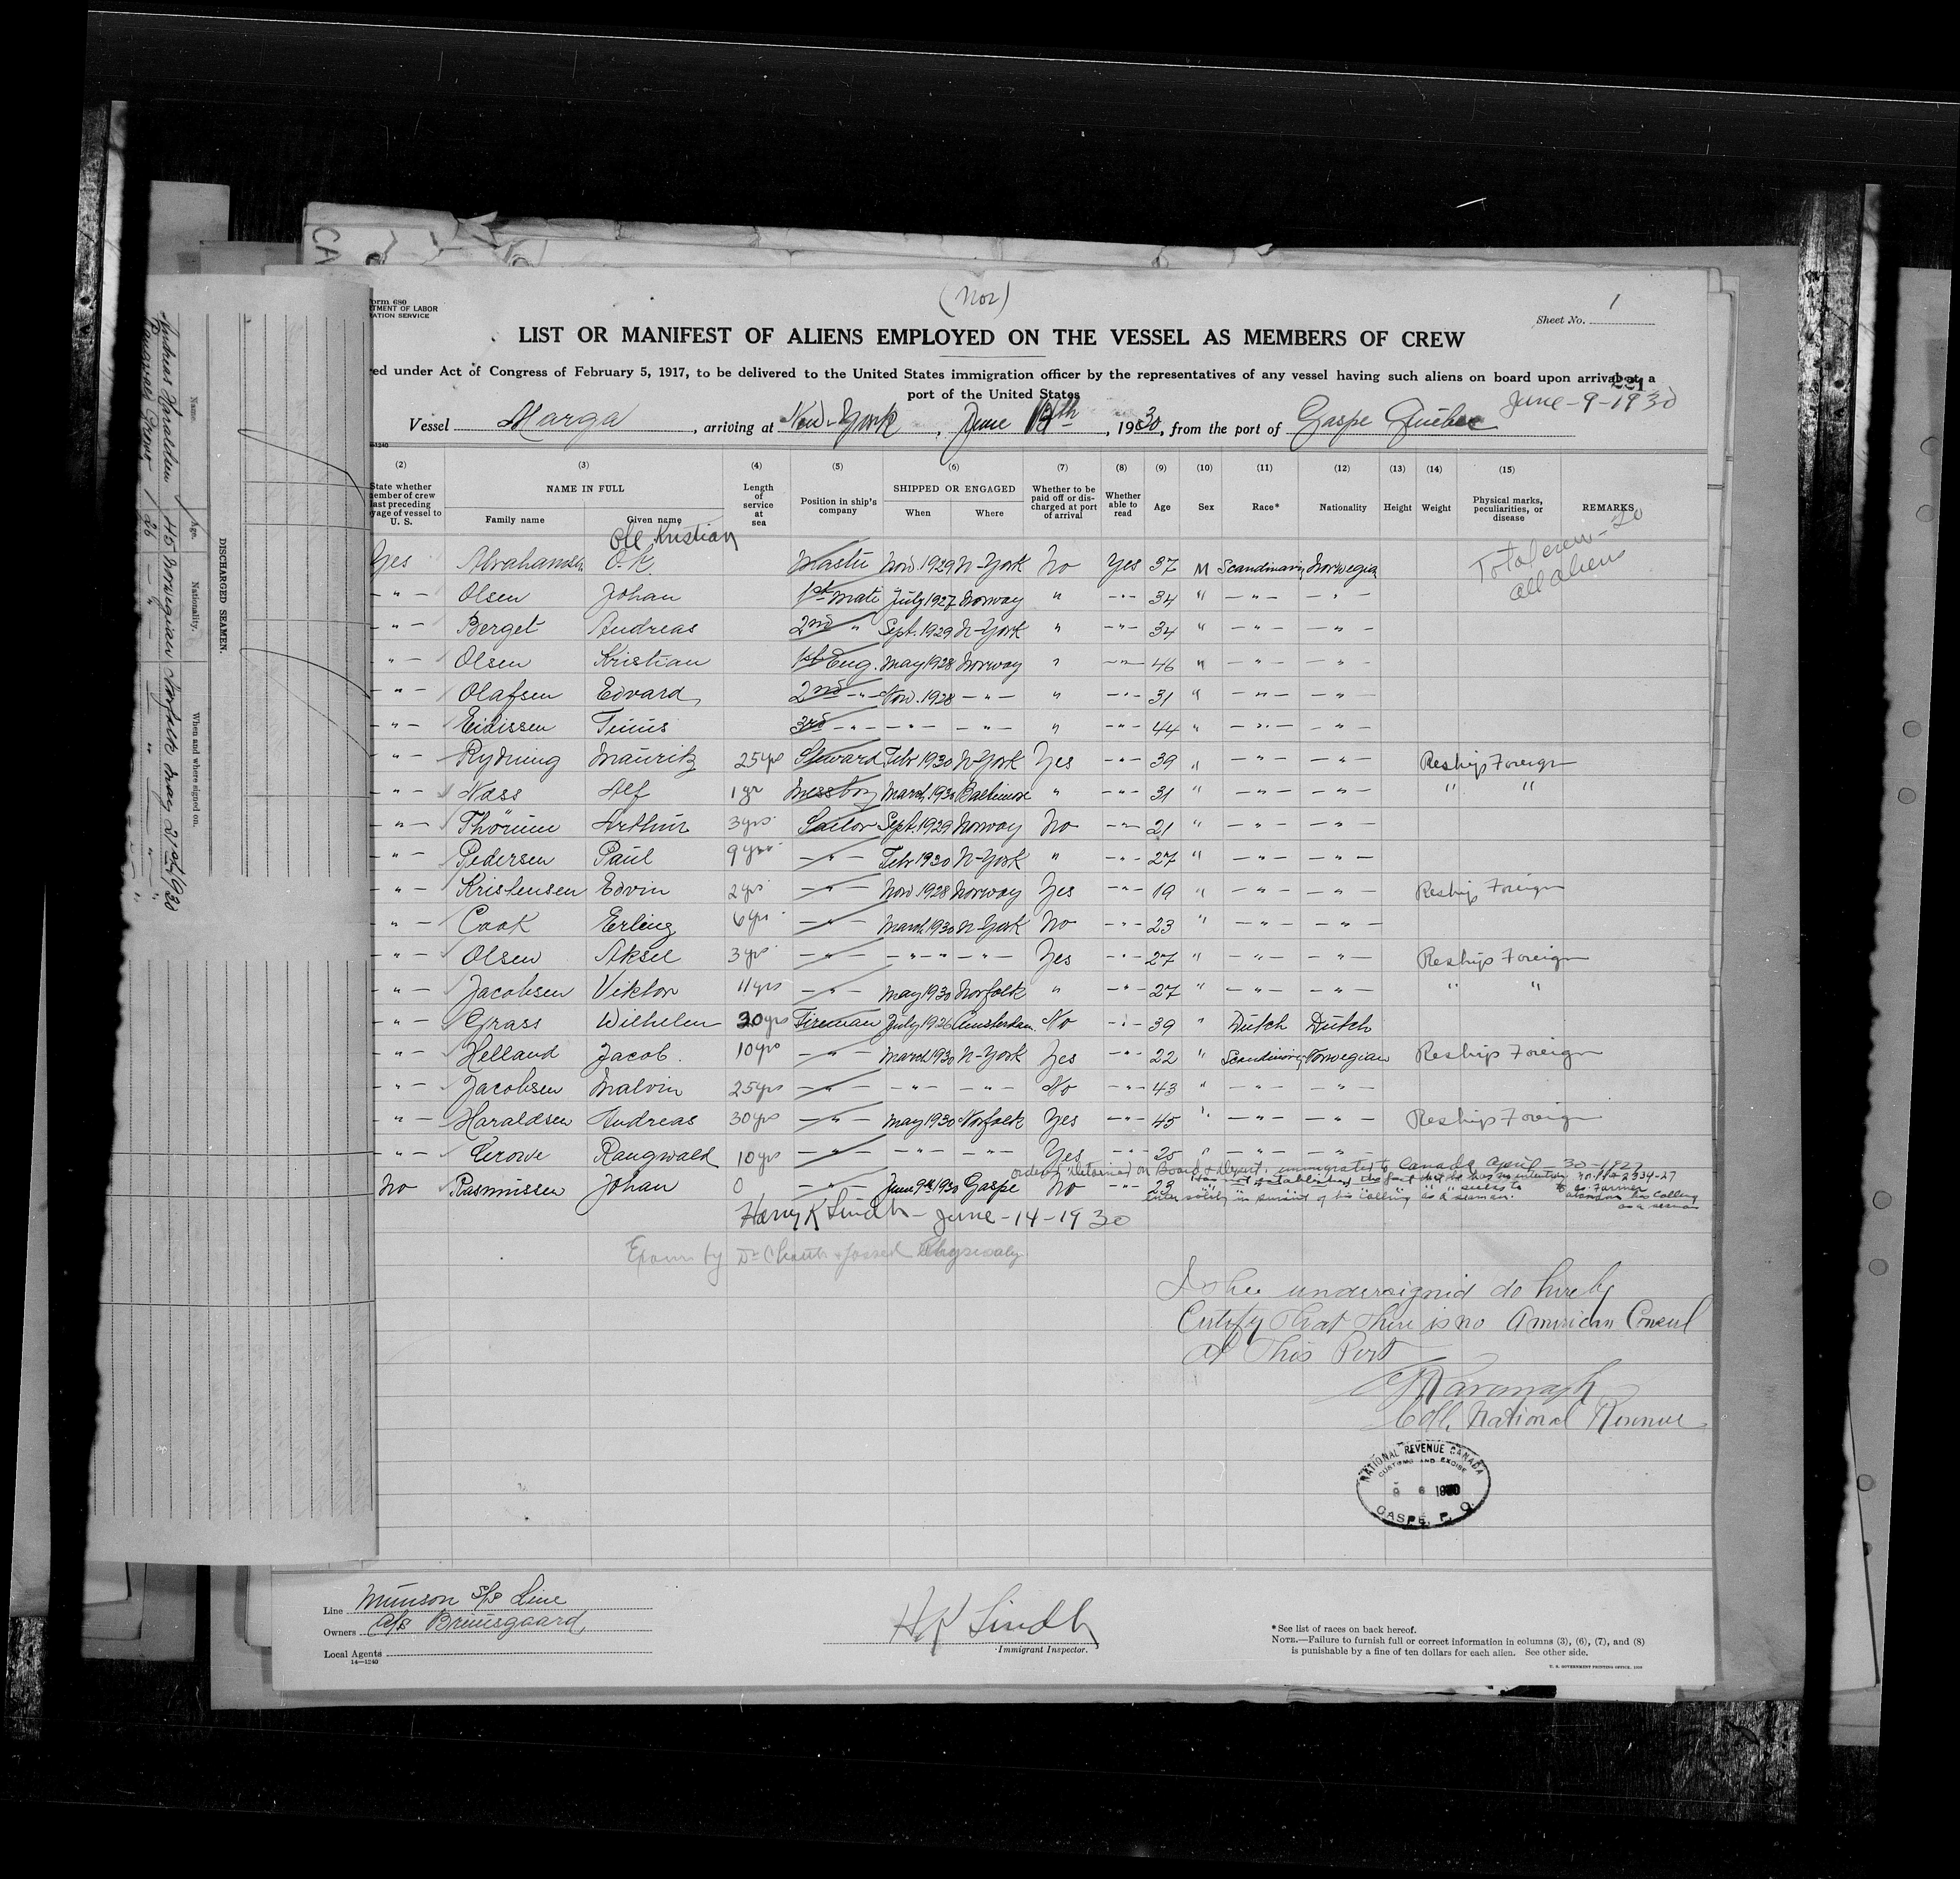 (Nor)
Form 680
DEPARTMENT OF LABOR
IMMIGRATION SERVICE
Sheet No. 1
LIST OR MANIFEST OF ALIENS EMPLOYED ON THE VESSEL AS MEMBERS OF CREW
ed under Act of Congress of February 5, 1917, to be delivered to the United States immigration officer by the representatives of any vessel having such aliens on board upon arrival at a
port of the United States
221
June-9-1930
Vessel Marga, arriving at New-York, June th, 1930, from the port of Gaspe Quebec
(2) (3) (4) (5) (6) (7) (8) (9) (10) (11) (12) (13) (14) (15)
State whether member of crew last preceding voyage of vessel to U. S.
NAME IN FULL
Family name Given name
Length of service at sea
Position in ship's company
SHIPPED OR ENGAGED
When Where
Whether to be paid off or discharged at port of arrival
Whether able to read
Age Sex Race* Nationality Height Weight
Physical marks, peculiarities, or disease
REMARKS
Total crew - 20
all aliens
Ole Kristian
Yes Abrahamsen O.K. Master Nov. 1929 N-York No Yes 37 M Scandinavian Norwegian
- " - Olsen Johan 1st Mate July 1927 Norway " - " - 34 " - " - - " -
- " - Berget Andreas 2nd " Sept. 1929 N-York " - " - 34 " - " - - " -
- " - Olsen Kristian 1st Eng. May 1928 Norway " - " - 46 " - " - - " -
- " - Olafsen Edvard 2nd - " - Nov. 1928 - " - " - " - 31 " - " - - " -
- " - Eidissen 3rd - " - - " - - " - " - " - 44 " - " - - " -
- " - Rydning Mauritz 25 yrs Steward Febr 1930 N-York Yes - " - 39 " - " - - " - Reship Foreign
- " - Næss Alf 1 yr Messboy March 1930 Baltimore " - " - 31 " - " - - " - " "
- " - Arthur 3 yrs Sailor Sept. 1929 Norway No - " - 21 " - " - - " -
- " - Pedersen Paul 9 yrs - " - Febr 1930 N-York " - " - 27 " - " - - " -
- " - Kristensen Edvin 2 yrs - " - Nov. 1928 Norway Yes - " - 19 " - " - - " - Reship Foreign
- " - Cook Erling 6 yrs - " - March 1930 N-York No - " - 23 " - " - - " -
- " - Olsen Aksel 3 yrs - " - - " - " - - " - Yes - " - 27 " - " - - " - Reship Foreign
- " - Jacobsen Viktor 11 yrs - " - May 1930 Norfolk " - " - 27 " - " - - " - " "
- " - Grass Wilhelm 20 yrs Fireman July 1926 Amsterdam No - " - 39 " Dutch Dutch
- " - Helland Jacob. 10 yrs - " - March 1930 N-York Yes - " - 22 " Scandinavian Norwegian Reship Foreign
- " - Jacobsen Malvin 25 yrs - " - - " - - " - No - " - 43 " - " - - " -
- " - Haraldsen Andreas 30 yrs - " - May 1930 Norfolk Yes - " - 45 " - " - - " - Reship Foreign
- " - Rangwald 10 yrs - " - - " - - " - Yes - " - 25 " - " - - " -
ordered detained on Board & deport. immigrated to Canada April 30 - 1927
Has not established the fact that he has no intention
No Rasmussen Johan 0 - " - June 9th 1930 Gaspe No - " - 23 seeks to as Farmer
enter solely in pursuit of his calling as a seaman. abandon his calling
as a seaman
Harry K Lindh - June-14-1930
Exam by Dr & passed Physicaly
I the undersigned do hereby
Certify that there is no American Consul
at This Port
Kavanagh
Coll. National Revenue
NATIONAL REVENUE CANADA
CUSTOMS AND EXCISE
9 6 1930
GASPE, P. Q.
Line Munson S/S Line
Owners A/S Bruusgaard
Local Agents
14-1240
H K Lindh
Immigrant Inspector.
*See list of races on back hereof.
NOTE.—Failure to furnish full or correct information in columns (3), (6), (7), and (8)
is punishable by a fine of ten dollars for each alien. See other side.
DISCHARGED SEAMEN.
Name. Age. Nationality. When and where signed on.
Andreas Haraldsen 45 Norwegian Norfolk May 21st 1930
26 - " - - " - " - " -